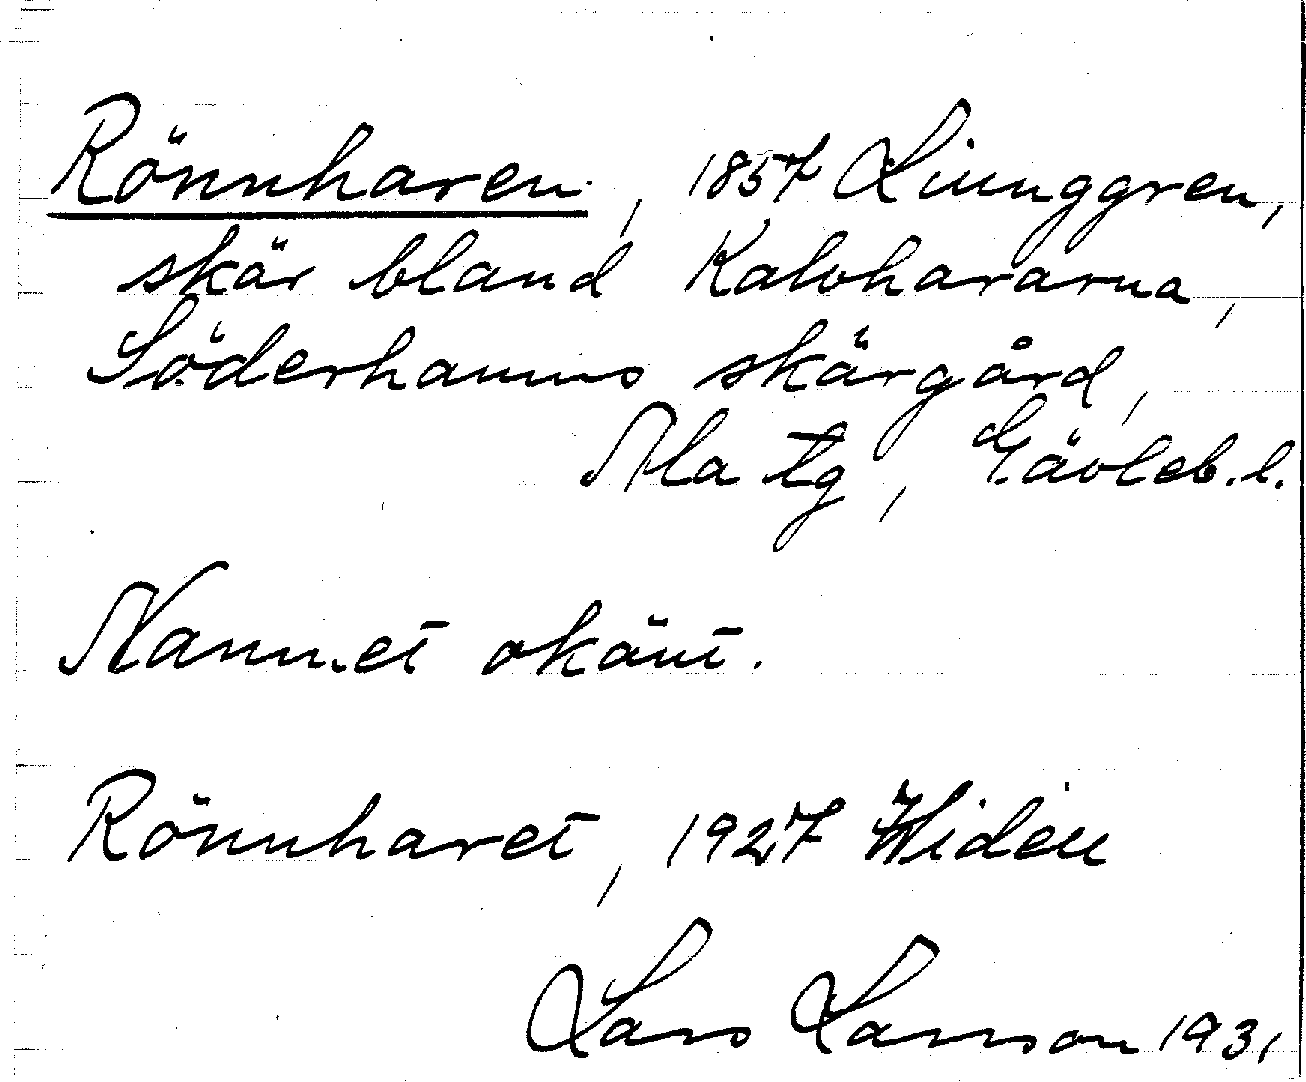 Rönnharen, 1857 Liunggren,
skär bland Kalvhararna,
Söderhamns skärgård,
Ala tg, Gävleb. l.
Namnet okänt.
Rönnharet, 1927 Widén
Lars Larsson 1931